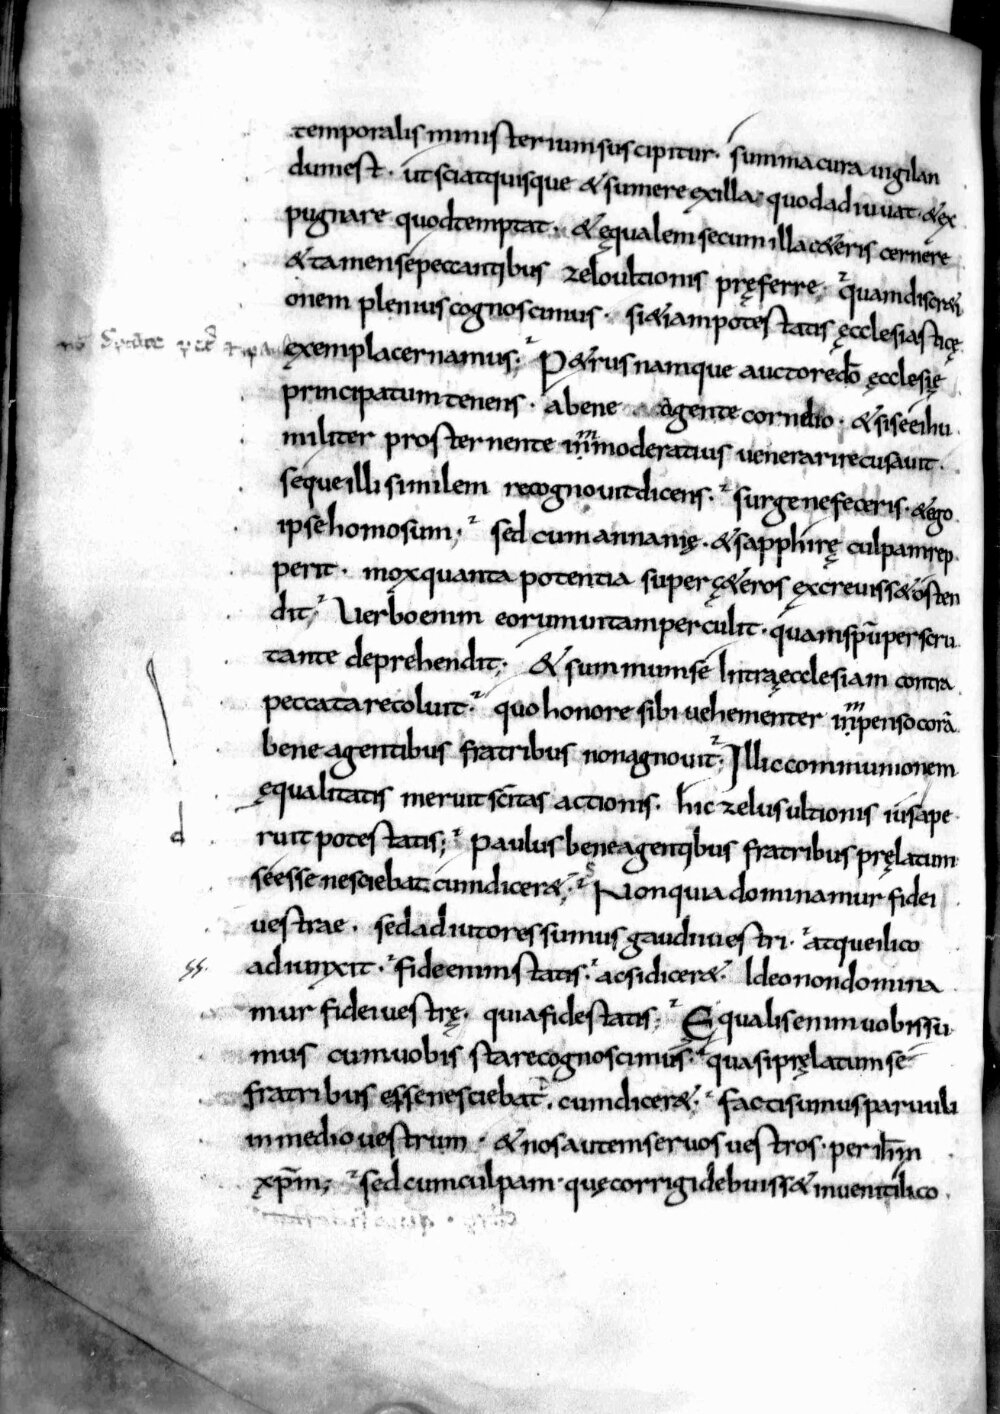 temporalis ministerium suscipitur · summa cura uigilan
dum est · ut sciat quisque & sumere ex illa · quod adiuuat · & ex
pugnare quod temptat · & ęqualem se cum illa c&eris cernere
& tamen se peccantibus zelo ultionis pręferre · quam discr&i
onem plenius cognoscimus · si &iam potestatis ęcclesiasticę
exempla cernamus; P&rus namque auctore dō ęcclesię
principatum tenens · a bene agente cornelio · & sise ei hu
militer prosternente immoderatius uenerari recusauit ·
seque illi similem recognouit dicens · surge ne feceris · & ego
ipse homo sum; sed cum annanię · & sapphirę culpam rep
perit · mox quanta potentia super c&eros excreuiss& osten
dit; Uerbo enim eorum uitam perculit · quam spū perscru
tante deprehendit; & summum se Intra ęcclesiam contra
peccata recoluit · quo honore sibi uehementer impenso corā
bene agentibus fratribus non agnouit · Illic communionem
ęqualitatis meruit scītas actionis · hic zelus ultionis ius ape
ruit potestatis; Paulus bene agentibus fratribus pręlatum
se esse nesciebat cum dicer&; Non quia dominamur fidei
uestrae · sed adiutores sumus gaudii uestri · atque ilico
adiunxit · fide enim statis · ac si dicer& · Ideo non domina
mur fidei uestrę · quia fide statis; Ęqualis enim uobis su
mus cum uobis stare cognoscimus · quasi pręlatum se
fratribus esse nesciebat · cum dicer& · facti sumus paruuli
in medio uestrum · & nos autem seruos uestros · per ihm
xpm; sed cum culpam · quę corrigi debuiss& inuenit ilico ·
d
ss ·